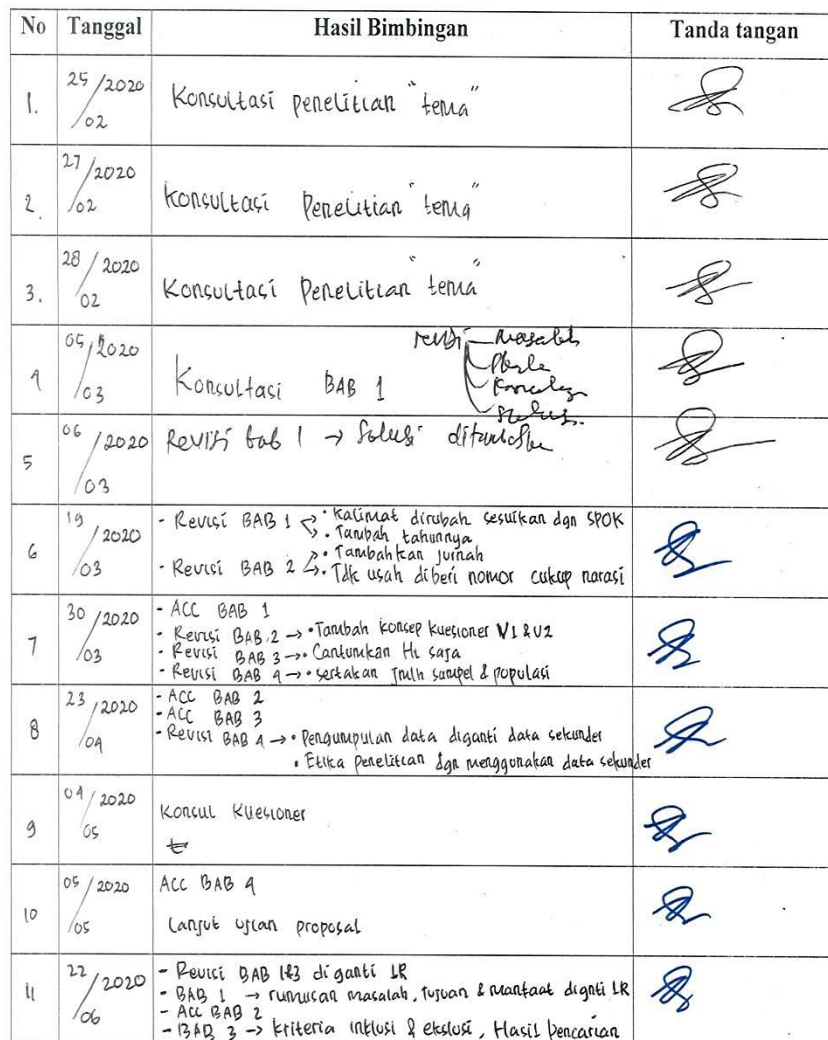 No Tanggal Hasil Bimbingan Tanda tangan
1. 25/2020/02 Konsultasi penelitian "tema"
2. 27/2020/02 Konsultasi Penelitian "tema"
3. 28/2020/02 Konsultasi Penelitian "tema"
4 05/2020/03 Konsultasi BAB 1 revisi Masalah
Skala
Kronologi
Solusi.
5 06/2020/03 Revisi bab 1 → Solusi
6 19/2020/03 - Revisi BAB 1 • Kalimat dirubah sesuikan dgn SPOK
• Tambah tahunnya
- Revisi BAB 2 • Tambahkan jurnah
• Tdk usah diberi nomor cukup narasi
7 30/2020/03 - ACC BAB 1
- Revisi BAB 2 → • Tambah konsep kuesioner V1 & V2
- Revisi BAB 3 → • Cantumkan H1 saja
- Revisi BAB 4 → • sertakan Jmlh sampel & populasi
8 23/2020/04 - ACC BAB 2
- ACC BAB 3
- Revisi BAB 4 → • Pengumpulan data diganti data sekunder
• Etika penelitian dgn menggunakan data sekunder
9 04/2020/05 Konsul Kuesioner
10 05/2020/05 ACC BAB 4
Lanjut ujian proposal
11 22/2020/06 - Revisi BAB 1&3 di ganti LR
- BAB 1 → rumusan masalah, tujuan & manfaat dignti LR
- Acc BAB 2
- BAB 3 → kriteria inklusi & ekslusi, Hasil pencarian